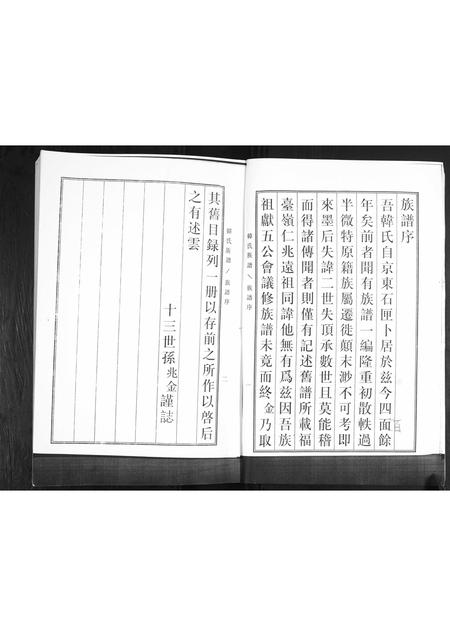 族譜序
吾韓氏自京東石匣卜居於茲今四面餘
年矣前者聞有族譜一編隆重初散軼過
半微特原籍族屬遷徙顛末渺不可考即
來墨后失諱二世失頂承數世且莫能稽
而得諸傳聞者則僅有記述舊譜所載福
臺嶺仁兆遠祖同諱他無有爲茲因吾族
祖獻五公會議修族譜未竟而終金乃取
韓氏族譜／族譜序
一
韓氏族譜／族譜序
二
其舊目録列一册以存前之所作以啓后
之有述雲
十三世孫兆金謹誌